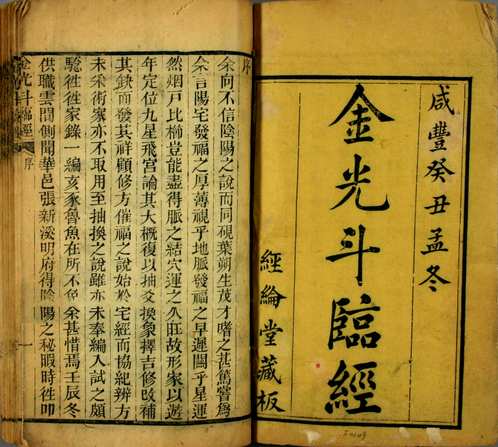 咸豐癸丑孟冬
金光斗臨經
經綸堂藏板
序
余向不信陰陽之說而同硯葉朔生茂才嗜之甚篤嘗爲
余言陽宅發福之厚薄視乎地脈發福之早遲關乎星運
然烟戶比櫛豈能盡得脈之結穴運之久旺故形家以遊
年定位九星飛宮論其大概復以抽爻換象擇吉修改補
其缺而發其祥顧修方催福之說始於宅經而協紀辨方
未采術家亦不取用至抽換之說雖亦未奉編人試之頗
驗徃徃家錄一編亥豕魯魚在所不免余甚惜焉壬辰冬
供職雲間側聞華邑張新溪明府得陰陽之秘暇時徃叩
金光斗臨經 序 一